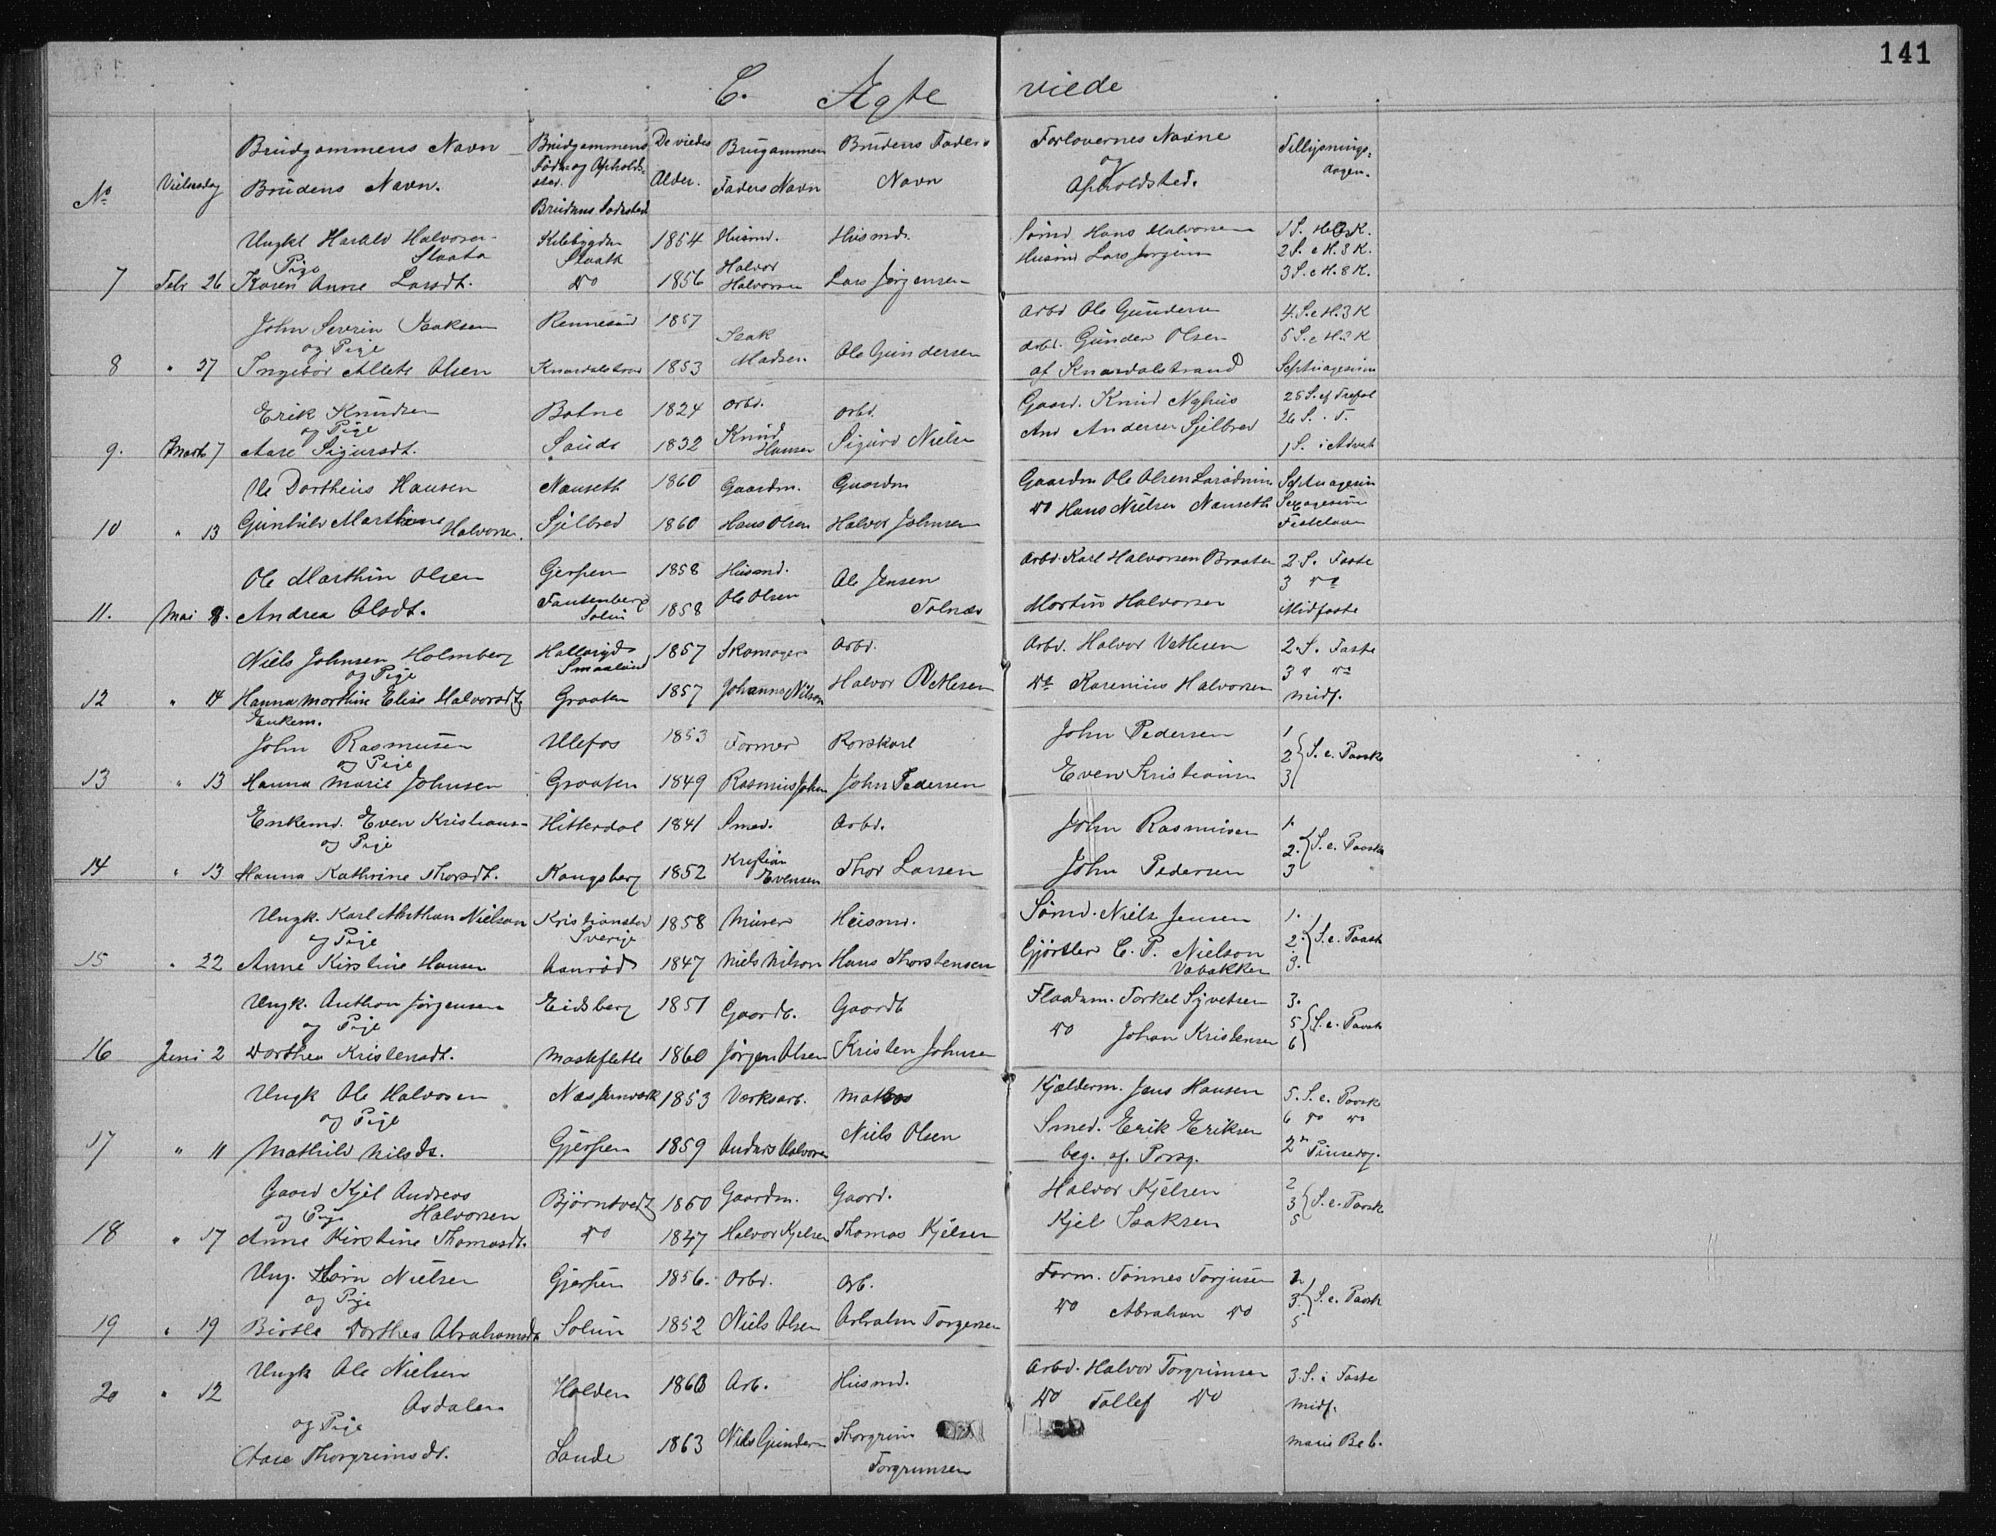 141
C. Ægte viede
No
Vielsesdag
Brudgommens Navn
Brudens Navn.
Brudgommens Føde- og Opholdssted.
Brudens Fødested
De viedes Alder.
Brugommen Faders Navn
Brudens Faders Navn
Forlovernes Navne og Opholdsted.
Tillysnings-dagen.
Ungkl Harald Halvorsen Slaata Kilebygden Slaata 1854 Husmd. Husmd. Hans Halvorsen
7 Febr 26 Pige Karen Anne Larsdt. do 1856 Halvor Halvorsen Lars Jørgensen Husmd Lars Jørgensen
2 S. e H. 3 K.
3 S. e H. 3 K.
John Sevrin Isaksen Rennesund 1857 Isak Madsen Arbd Ole Gundersen 4 S. e H. 3 K
og Pige Arbd. Gunder Olsen 5 S. e H. 3 K
8 " 27 Ingebor Allete Olsen 1853 Ole Gundersen af Knardalstrand Septuagesima
Erik Knudsen Botne 1824 Arbd. Arbd. Gaard. Knud Nyhus 25 S. ef Trefol
og Pige 26 S. " T.
9. Marts 7 Aase Sigursdt. Saude 1832 Knud Hansen Sigurd Nielsen And Andersen Sjelbred 1 S. i Advent
Ole Dortheus Hansen Nanseth 1860 Gaardm. Gaardm Gaardm Ole Olsen Septuagesim
10 " 13 Gunhild Marthine Halvorsen. Sjelbred 1860 Hans Olsen Halvor Johnsen do Hans Nielsen Nanseth Sexagesima
Fastelavn
Ole Marthin Olsen Gerpen 1858 Husmd. Ole Jensen Arbd. Karl Halvorsen Braaten 2 S. Faste
3 do
11. Mai 8. Andrea Olsdt. Solum 1858 Ole Olsen Tolnæs Martin Halvorsen Midfaste
Niels Johnsen Holmberg Smaaland 1857 Skomager Arbd. Arbd. Halvor Vetlesen 2. S. Faste
og Pige 3 " do
12 " 14 Hanna Marthine Elise Halvorsdt Graaten 1857 Johannes Nilson Halvor Vetlesen do Karenius Halvorsen Midf.
Enkem.
John Rasmusen Ulefos 1853 Former Korskarl John Pedersen 1
og Pige 2 S. e. Paaske
13 " 13 Hanna Marie Johnsen Graaten 1849 Rasmus John John Pedersen Even Kristiansen 3
Enkemd. Even Kristians- Hitterdal 1841 Smed. Arbd. John Rasmusen 1.
og Pige 2. S. e. Paaske
14 " 13 Hanna Kathrine Thorsdt. Kongsberg 1852 Kristian Evensen Thor Larsen John Pedersen 3
Ungk. Karl Nielson Kristianstad Sverige 1858 Murer Husmd. Sømd. Niels Jensen 1.
og Pige 2. S. e. Paask
15 " 22 Anne Kirstine Hansen Aanrød 1847 Niels Nilson Hans Thorstensen Gjørtler C. P. Nielson Vabakken 3.
Ungk. Anthon Jørgensen Eidsberg 1851 Gaardb. Gaardb Flaadm. Torkel Syvertsen 3.
og Pige 5 S. e. Paask
16 Juni 2 Dorthea Kristensdt. 1860 Jørgen Olsen Kristen Johnsen do Johan Kristensen 6
Ungk Ole Halvorsen Næs Jernværk 1853 Værksarb. Matros Kjælderm. Jens Hansen 5. S. e. Paask
og Pige Smed. Erik Eriksen 6 do do
17 " 11 Mathild Nilsdt. Gjerpen 1859 Anders Halvorsen Niels Olsen beg. af Porsg. 2n Pinsedag.
Gaard Kjel Andreas Halvorsen Bjørntvedt 1850 Gaardm. Gaard. Halvor Kjelsen 2
og Pige 3 S. e. Paask
18 " 17 Anne Kirstine Thomasdt. do 1847 Halvor Kjelsen Thomas Kjelsen Kjel Isaksen 5
Ung. Nielsen Gjerpen 1856. Arbd. Arb. Form. Tønnes Torjusen 2
og Pige 3. S. e. Paask
19 " 19 Dorthea Abrahamsdt Solum 1852 Niels Olsen Torgersen do Abraham do 5
Ungk Ole Nielsen Holden 1860 Arb. Husmd. Arbd. Halvor Torgrimsen 3. S. i Faste
20 " 12 Aasdalen do Tollef do Midf.
og Pige
Aase Thorgrimsdt. Saude 1863 Niels Gundersen Thorgrim Torgrimsen Maria Beb.